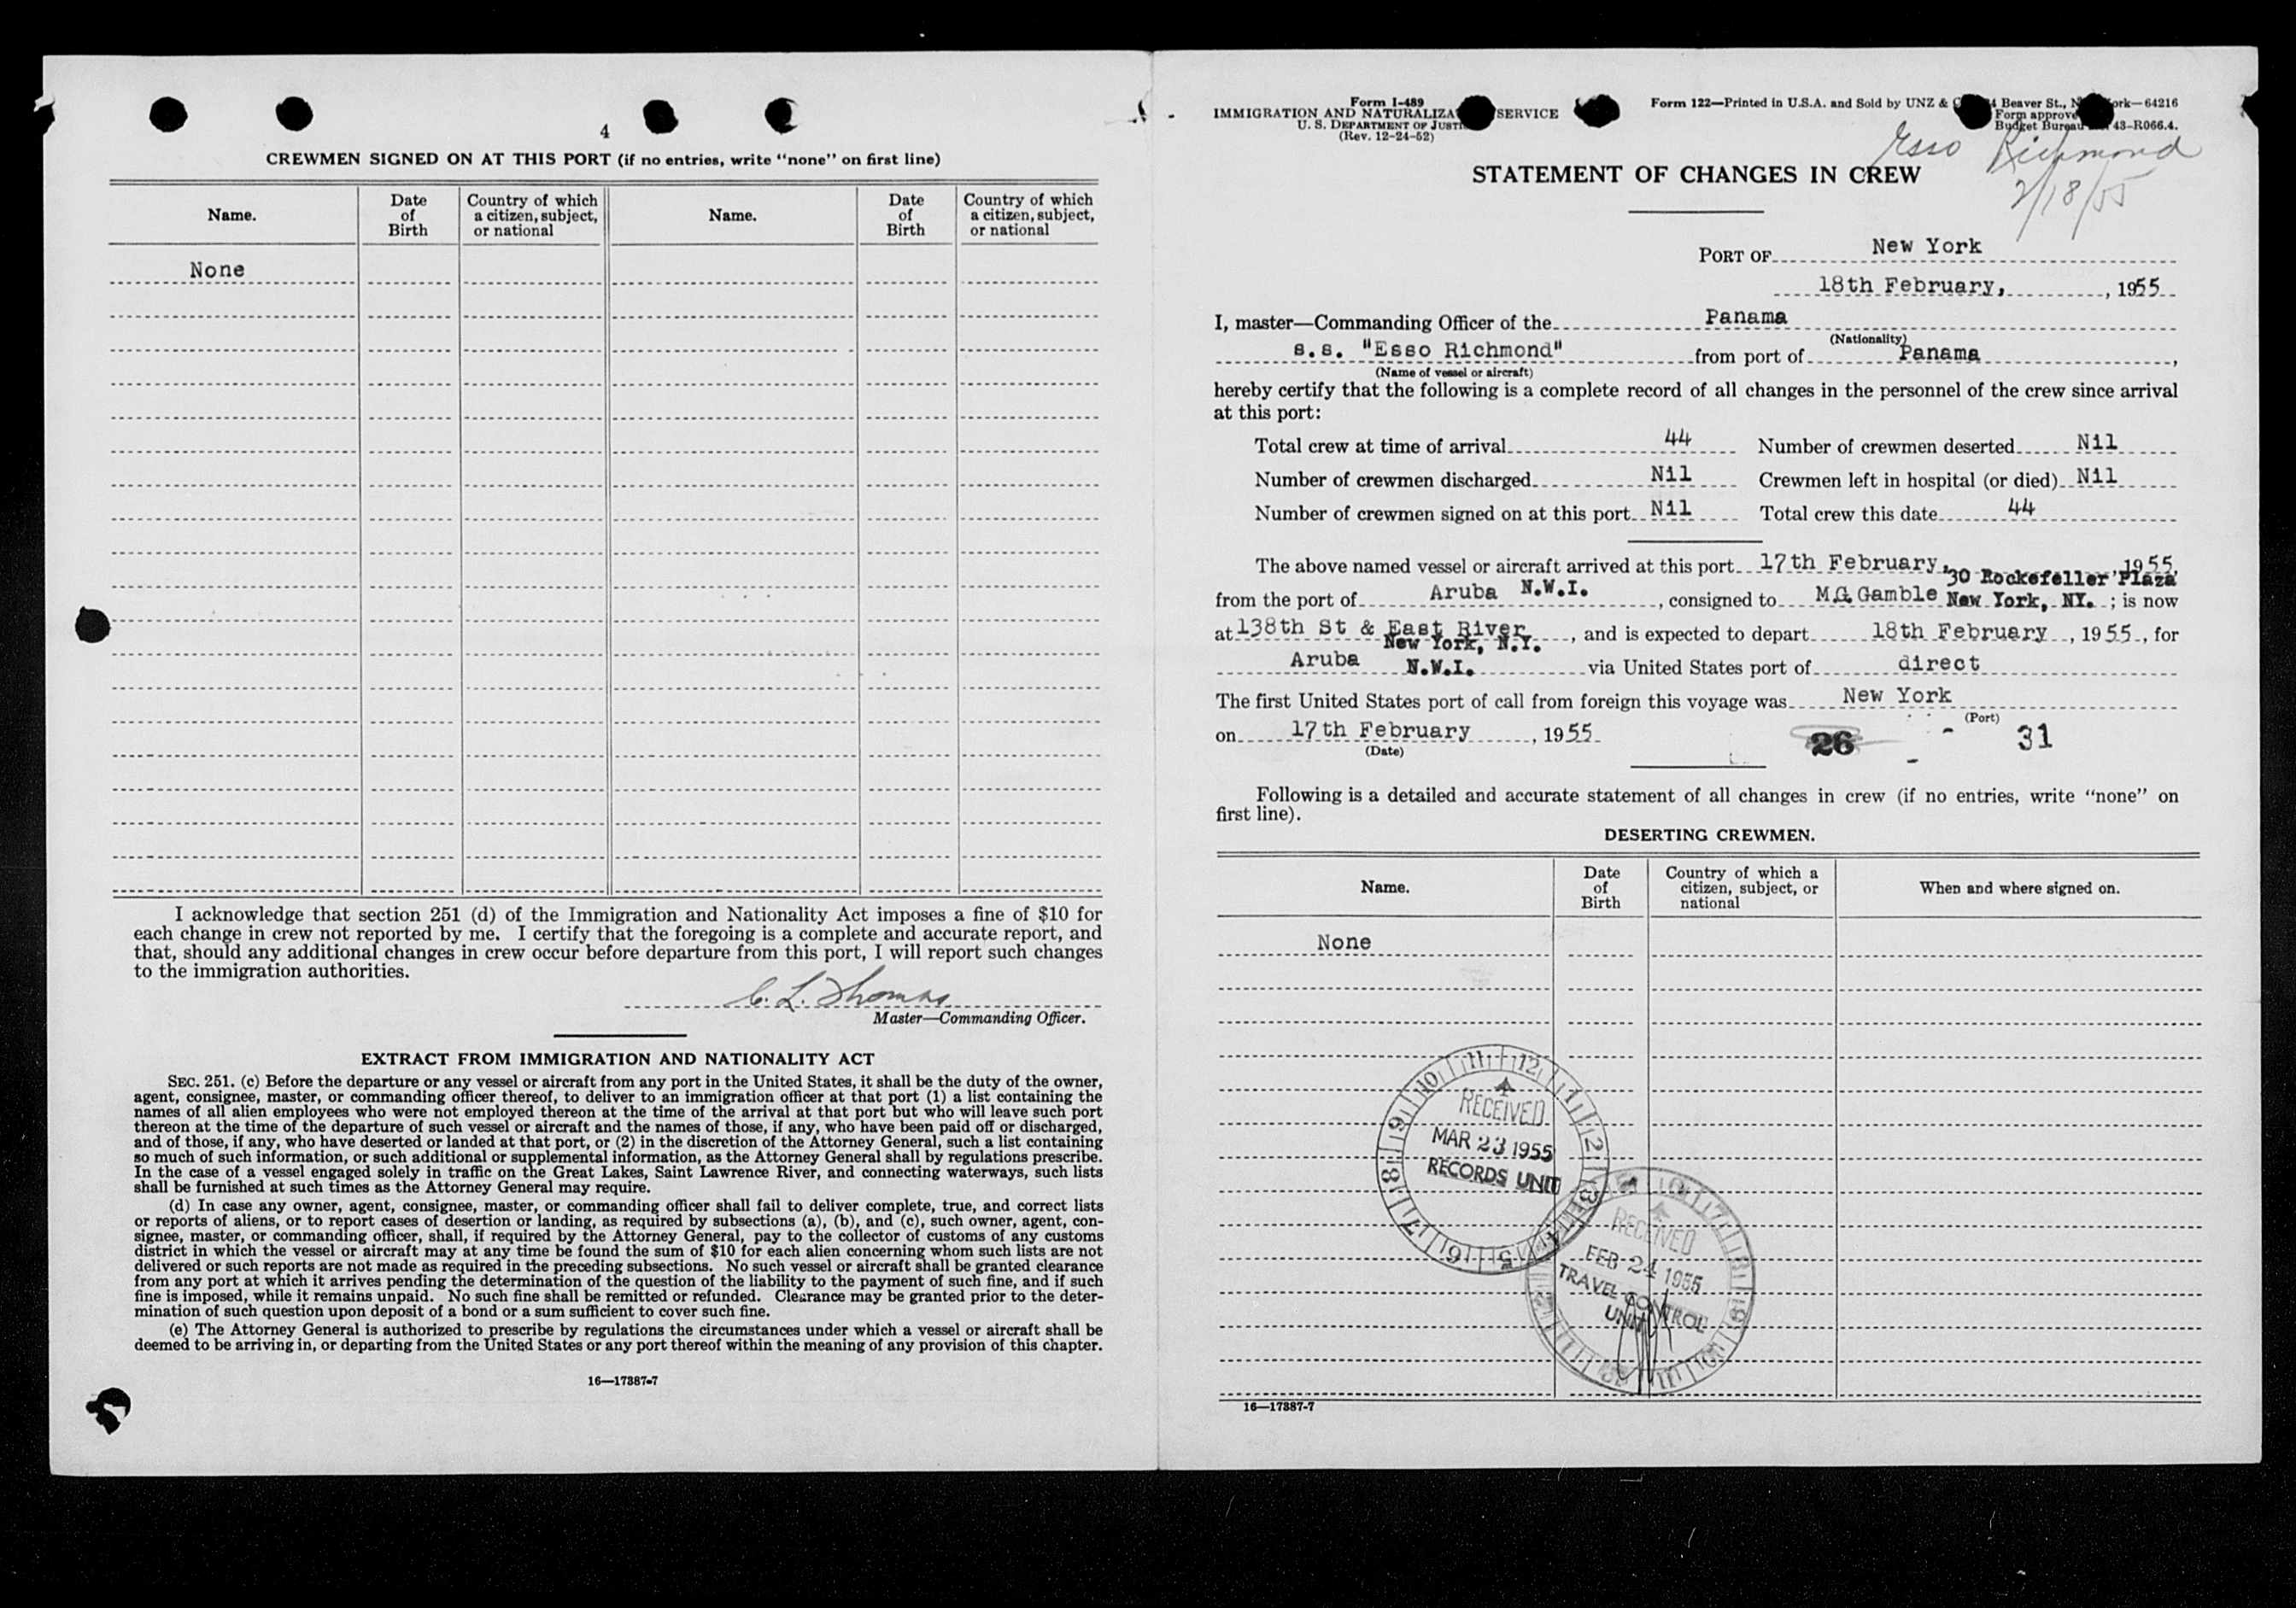 4
CREWMEN SIGNED ON AT THIS PORT (if no entries, write "none" on first line)
Name.
Date of Birth
Country of which a citizen, subject, or national
Name.
Date of Birth
Country of which a citizen, subject, or national
None
I acknowledge that section 251 (d) of the Immigration and Nationality Act imposes a fine of $10 for
each change in crew not reported by me. I certify that the foregoing is a complete and accurate report, and
that, should any additional changes in crew occur before departure from this port, I will report such changes
to the immigration authorities.
C. L. Thomas
Master—Commanding Officer.
EXTRACT FROM IMMIGRATION AND NATIONALITY ACT
SEC. 251. (c) Before the departure or any vessel or aircraft from any port in the United States, it shall be the duty of the owner,
agent, consignee, master, or commanding officer thereof, to deliver to an immigration officer at that port (1) a list containing the
names of all alien employees who were not employed thereon at the time of the arrival at that port but who will leave such port
thereon at the time of the departure of such vessel or aircraft and the names of those, if any, who have been paid off or discharged,
and of those, if any, who have deserted or landed at that port, or (2) in the discretion of the Attorney General, such a list containing
so much of such information, or such additional or supplemental information, as the Attorney General shall by regulations prescribe.
In the case of a vessel engaged solely in traffic on the Great Lakes, Saint Lawrence River, and connecting waterways, such lists
shall be furnished at such times as the Attorney General may require.
(d) In case any owner, agent, consignee, master, or commanding officer shall fail to deliver complete, true, and correct lists
or reports of aliens, or to report cases of desertion or landing, as required by subsections (a), (b), and (c), such owner, agent, con-
signee, master, or commanding officer, shall, if required by the Attorney General, pay to the collector of customs of any customs
district in which the vessel or aircraft may at any time be found the sum of $10 for each alien concerning whom such lists are not
delivered or such reports are not made as required in the preceding subsections. No such vessel or aircraft shall be granted clearance
from any port at which it arrives pending the determination of the question of the liability to the payment of such fine, and if such
fine is imposed, while it remains unpaid. No such fine shall be remitted or refunded. Clearance may be granted prior to the deter-
mination of such question upon deposit of a bond or a sum sufficient to cover such fine.
(e) The Attorney General is authorized to prescribe by regulations the circumstances under which a vessel or aircraft shall be
deemed to be arriving in, or departing from the United States or any port thereof within the meaning of any provision of this chapter.
16—17387-7
Form I-489
IMMIGRATION AND NATURALIZA SERVICE
U. S. DEPARTMENT OF JUST
(Rev. 12-24-52)
Form 122—Printed in U.S.A. and Sold by UNZ & Beaver St., N ork—64216
Form approve
Budget Bureau 43-R066.4.
Esso Richmond
2/18/55
STATEMENT OF CHANGES IN CREW
PORT OF New York
18th February, , 1955
I, master—Commanding Officer of the Panama
(Nationality)
s.s. "Esso Richmond" from port of Panama ,
(Name of vessel or aircraft)
hereby certify that the following is a complete record of all changes in the personnel of the crew since arrival
at this port:
Total crew at time of arrival 44 Number of crewmen deserted Nil
Number of crewmen discharged Nil Crewmen left in hospital (or died) Nil
Number of crewmen signed on at this port Nil Total crew this date 44
The above named vessel or aircraft arrived at this port 17th February, 1955,
30 Rockefeller Plaza
from the port of Aruba N.W.I. , consigned to M.G. Gamble New York, NY. ; is now
at 138th St & East River , and is expected to depart 18th February , 1955 , for
New York, N.Y.
Aruba N.W.I. via United States port of direct
The first United States port of call from foreign this voyage was New York
(Port)
on 17th February , 1955
(Date)
26
31
Following is a detailed and accurate statement of all changes in crew (if no entries, write "none" on
first line).
DESERTING CREWMEN.
Name.
Date of Birth
Country of which a citizen, subject, or national
When and where signed on.
None
RECEIVED
MAR 23 1955
RECORDS UNIT
RECEIVED
FEB 24 1955
TRAVEL CONTROL
UNIT
16—17387-7